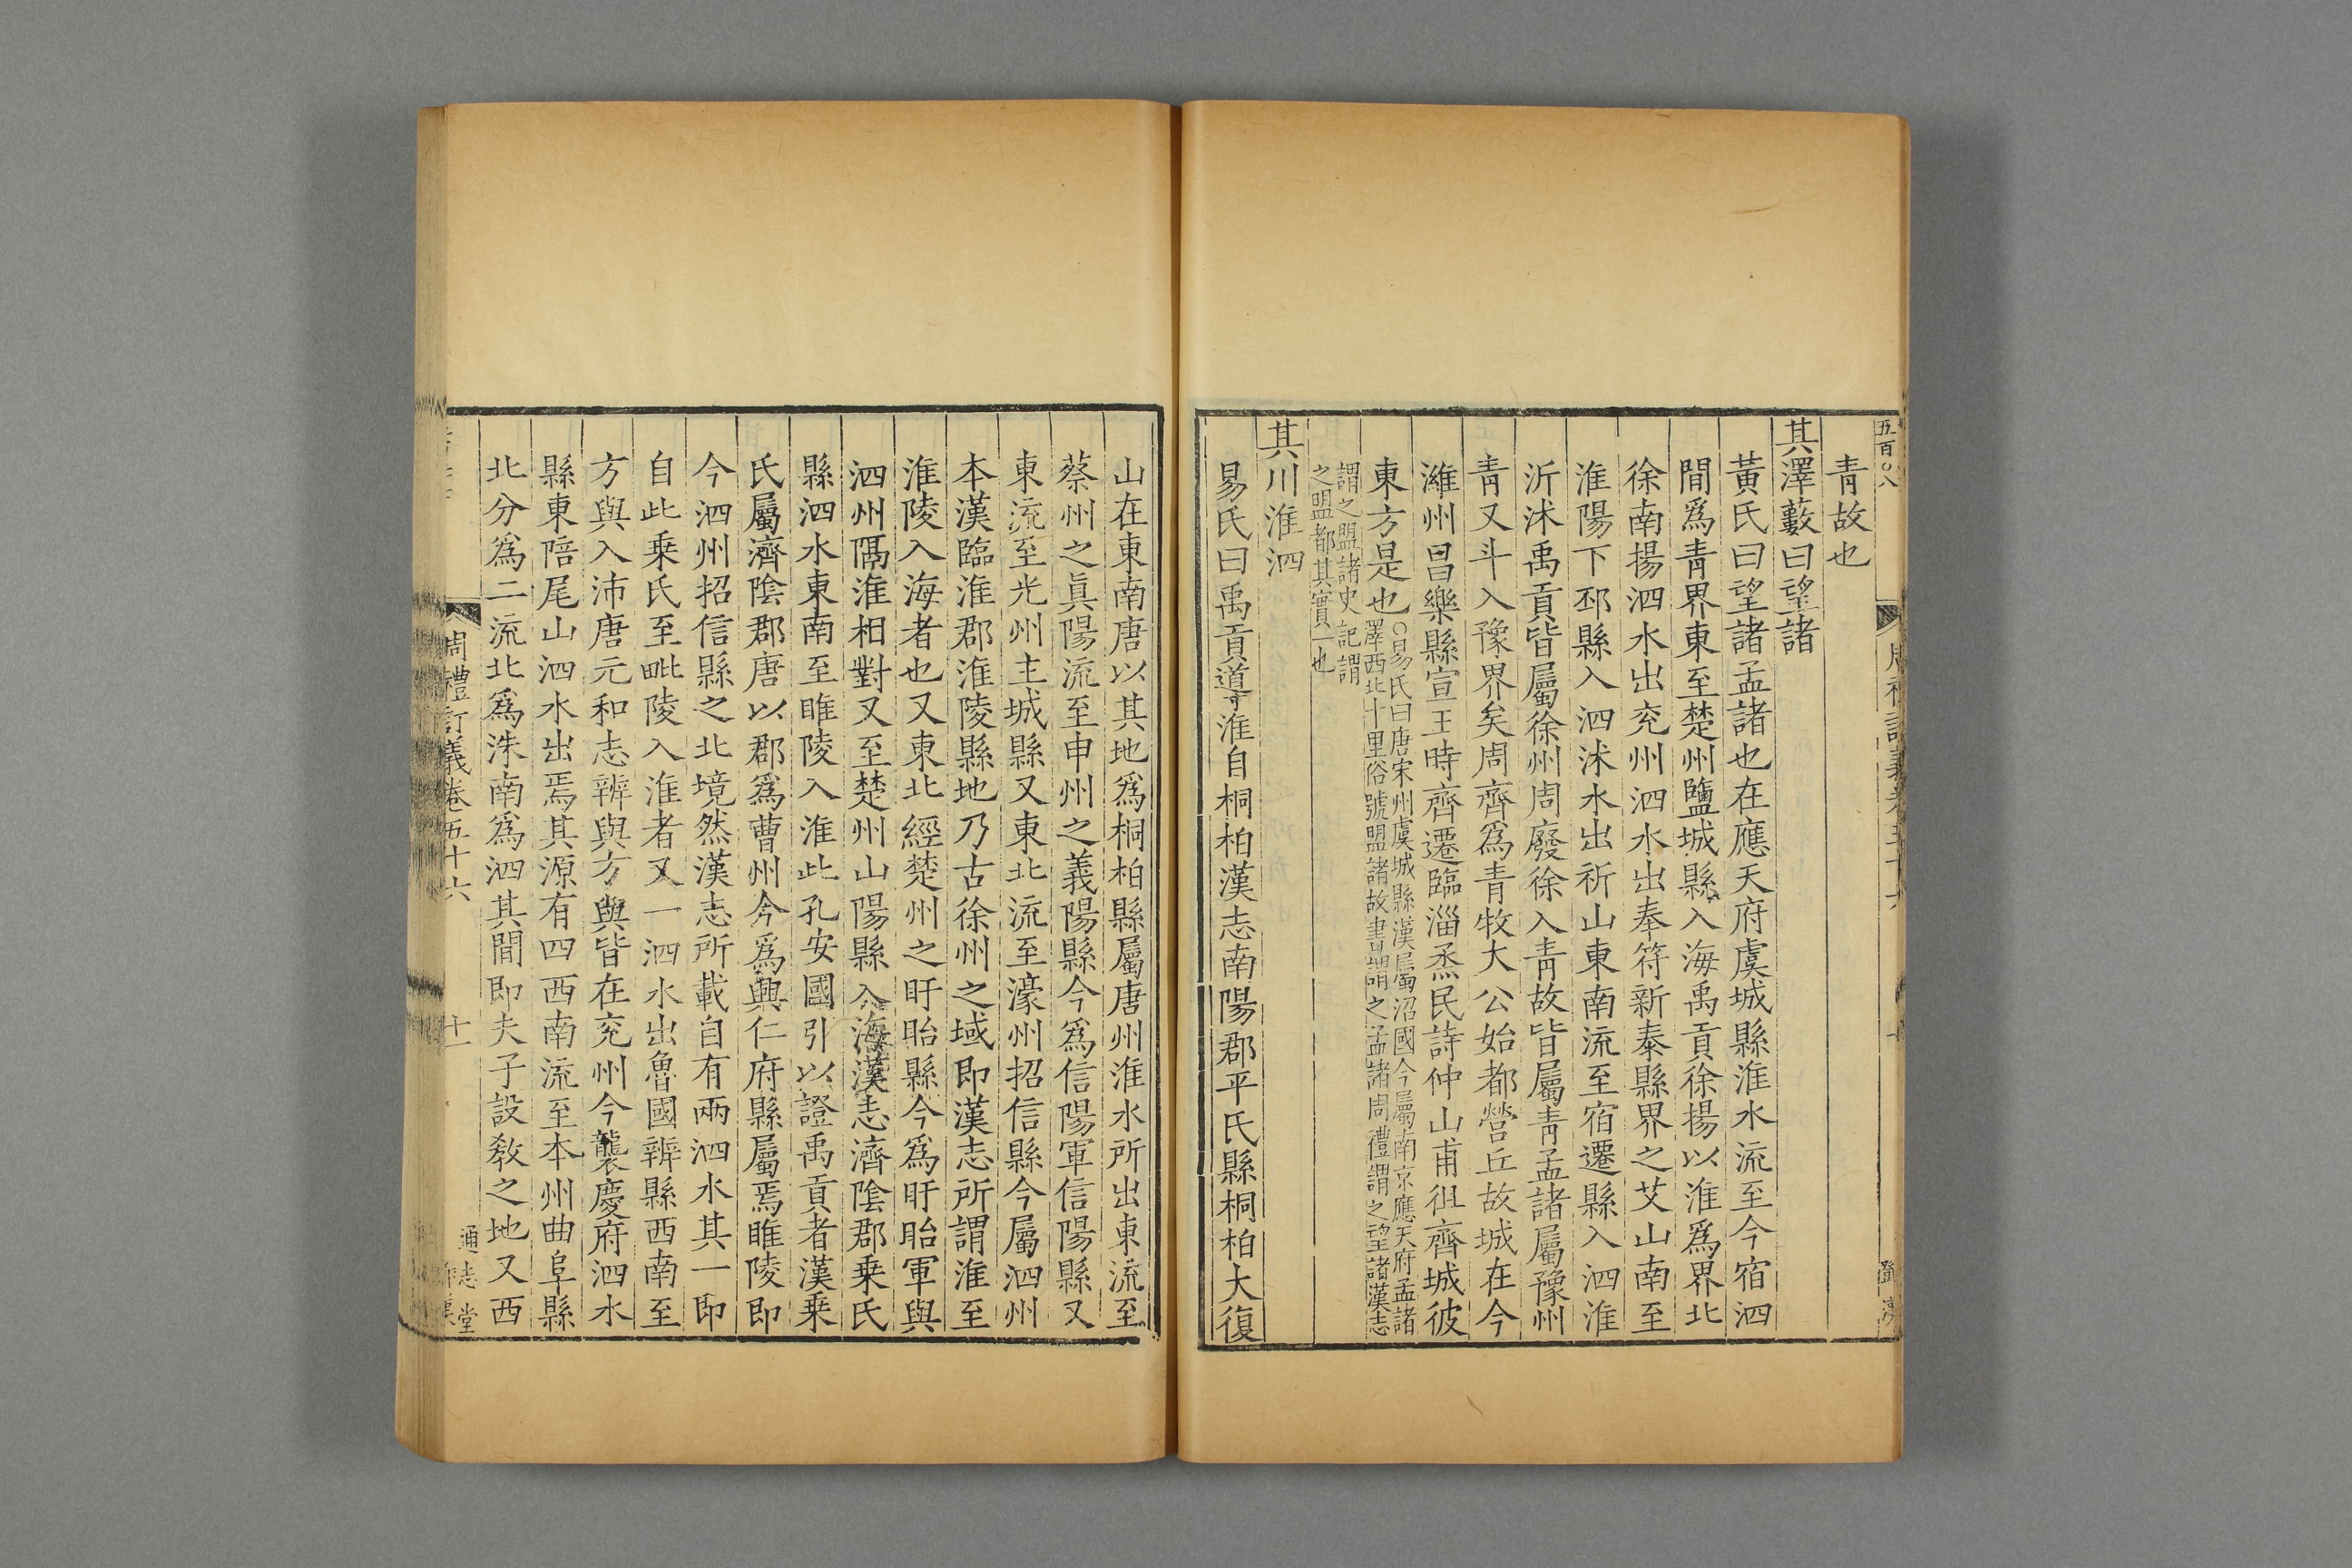 五百〇八
青故也
其澤藪曰望諸
黃氏曰望諸孟諸也在應天府虞城縣淮水流至今宿泗
間爲青界東至楚州鹽城縣入海禹貢徐揚以淮爲界北
徐南揚泗水出兖州泗水出奉符新泰縣界之艾山南至
淮陽下邳縣入泗沭水出祈山東南流至宿遷縣入泗淮
沂沭禹貢皆屬徐州周廢徐入青故皆屬青孟諸屬豫州
青又斗入豫界矣周齊爲青牧大公始都營丘故城在今
濰州昌樂縣宣王時齊遷臨淄烝民詩仲山甫徂齊城彼
東方是也○易氏曰唐宋州虞城縣漢屬沼國今屬南京應天府孟諸
澤西北十里俗號盟諸故書謂之孟諸周禮謂之望諸漢志
謂之盟諸史記謂
之盟都其實一也
其川淮泗
易氏曰禹貢導淮自桐柏漢志南陽郡平氏縣桐柏大復
山在東南唐以其地爲桐柏縣屬唐州淮水所出東流至
蔡州之眞陽流至申州之義陽縣今爲信陽軍信陽縣又
東流至光州主城縣又東北流至濠州招信縣今屬泗州
本漢臨淮郡淮陵縣地乃古徐州之域即漢志所謂淮至
淮陵入海者也又東北經楚州之盱眙縣今爲盱眙軍與
泗州隔淮相對又至楚州山陽縣入海漢志濟陰郡乗氏
縣泗水東南至睢陵入淮此孔安國引以證禹貢者漢乗
氏屬濟陰郡唐以郡爲曹州今爲興仁府縣屬焉睢陵即
今泗州招信縣之北境然漢志所載自有兩泗水其一即
自此乗氏至毗陵入淮者又一泗水出魯國辨縣西南至
方與入沛唐元和志辨與方與皆在兖州今襲慶府泗水
縣東陪尾山泗水出焉其源有四西南流至本州曲阜縣
北分爲二流北爲洙南爲泗其間即夫子設敎之地又西
周禮訂義卷五十六
十一
通志堂